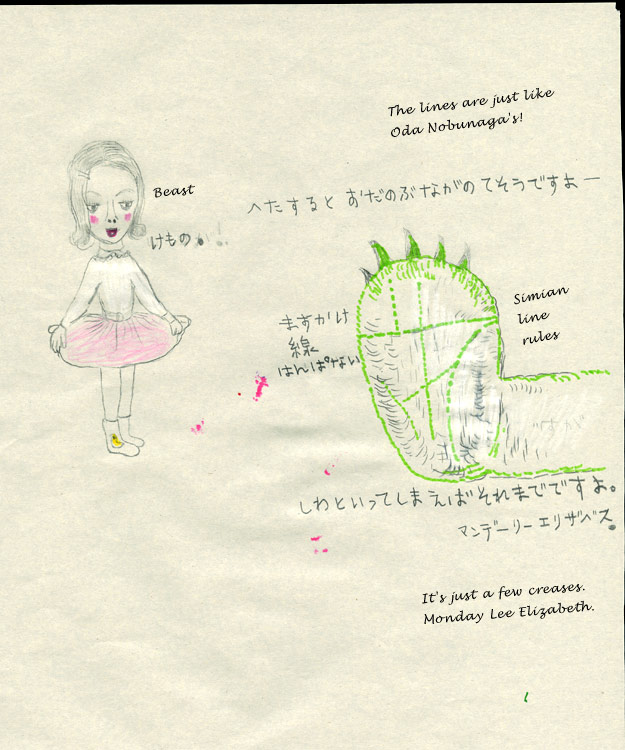 The lines are just like
Oda Nobunaga's!
へたすると おだのぶながのてそうですよー
Beast
けもの
Simian
line
rules
ますかけ
線
はんぱない
しわといってしまえばそれまでですよ。
マンデーリー エリザベス。
It's just a few creases.
Monday Lee Elizabeth.